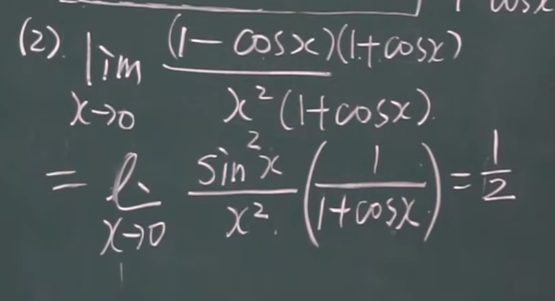 (2). lim x→0 (1-cosx)(1+cosx) / x²(1+cosx).
= l. x→0 sin²x / x². (1 / 1+cosx.) = 1/2